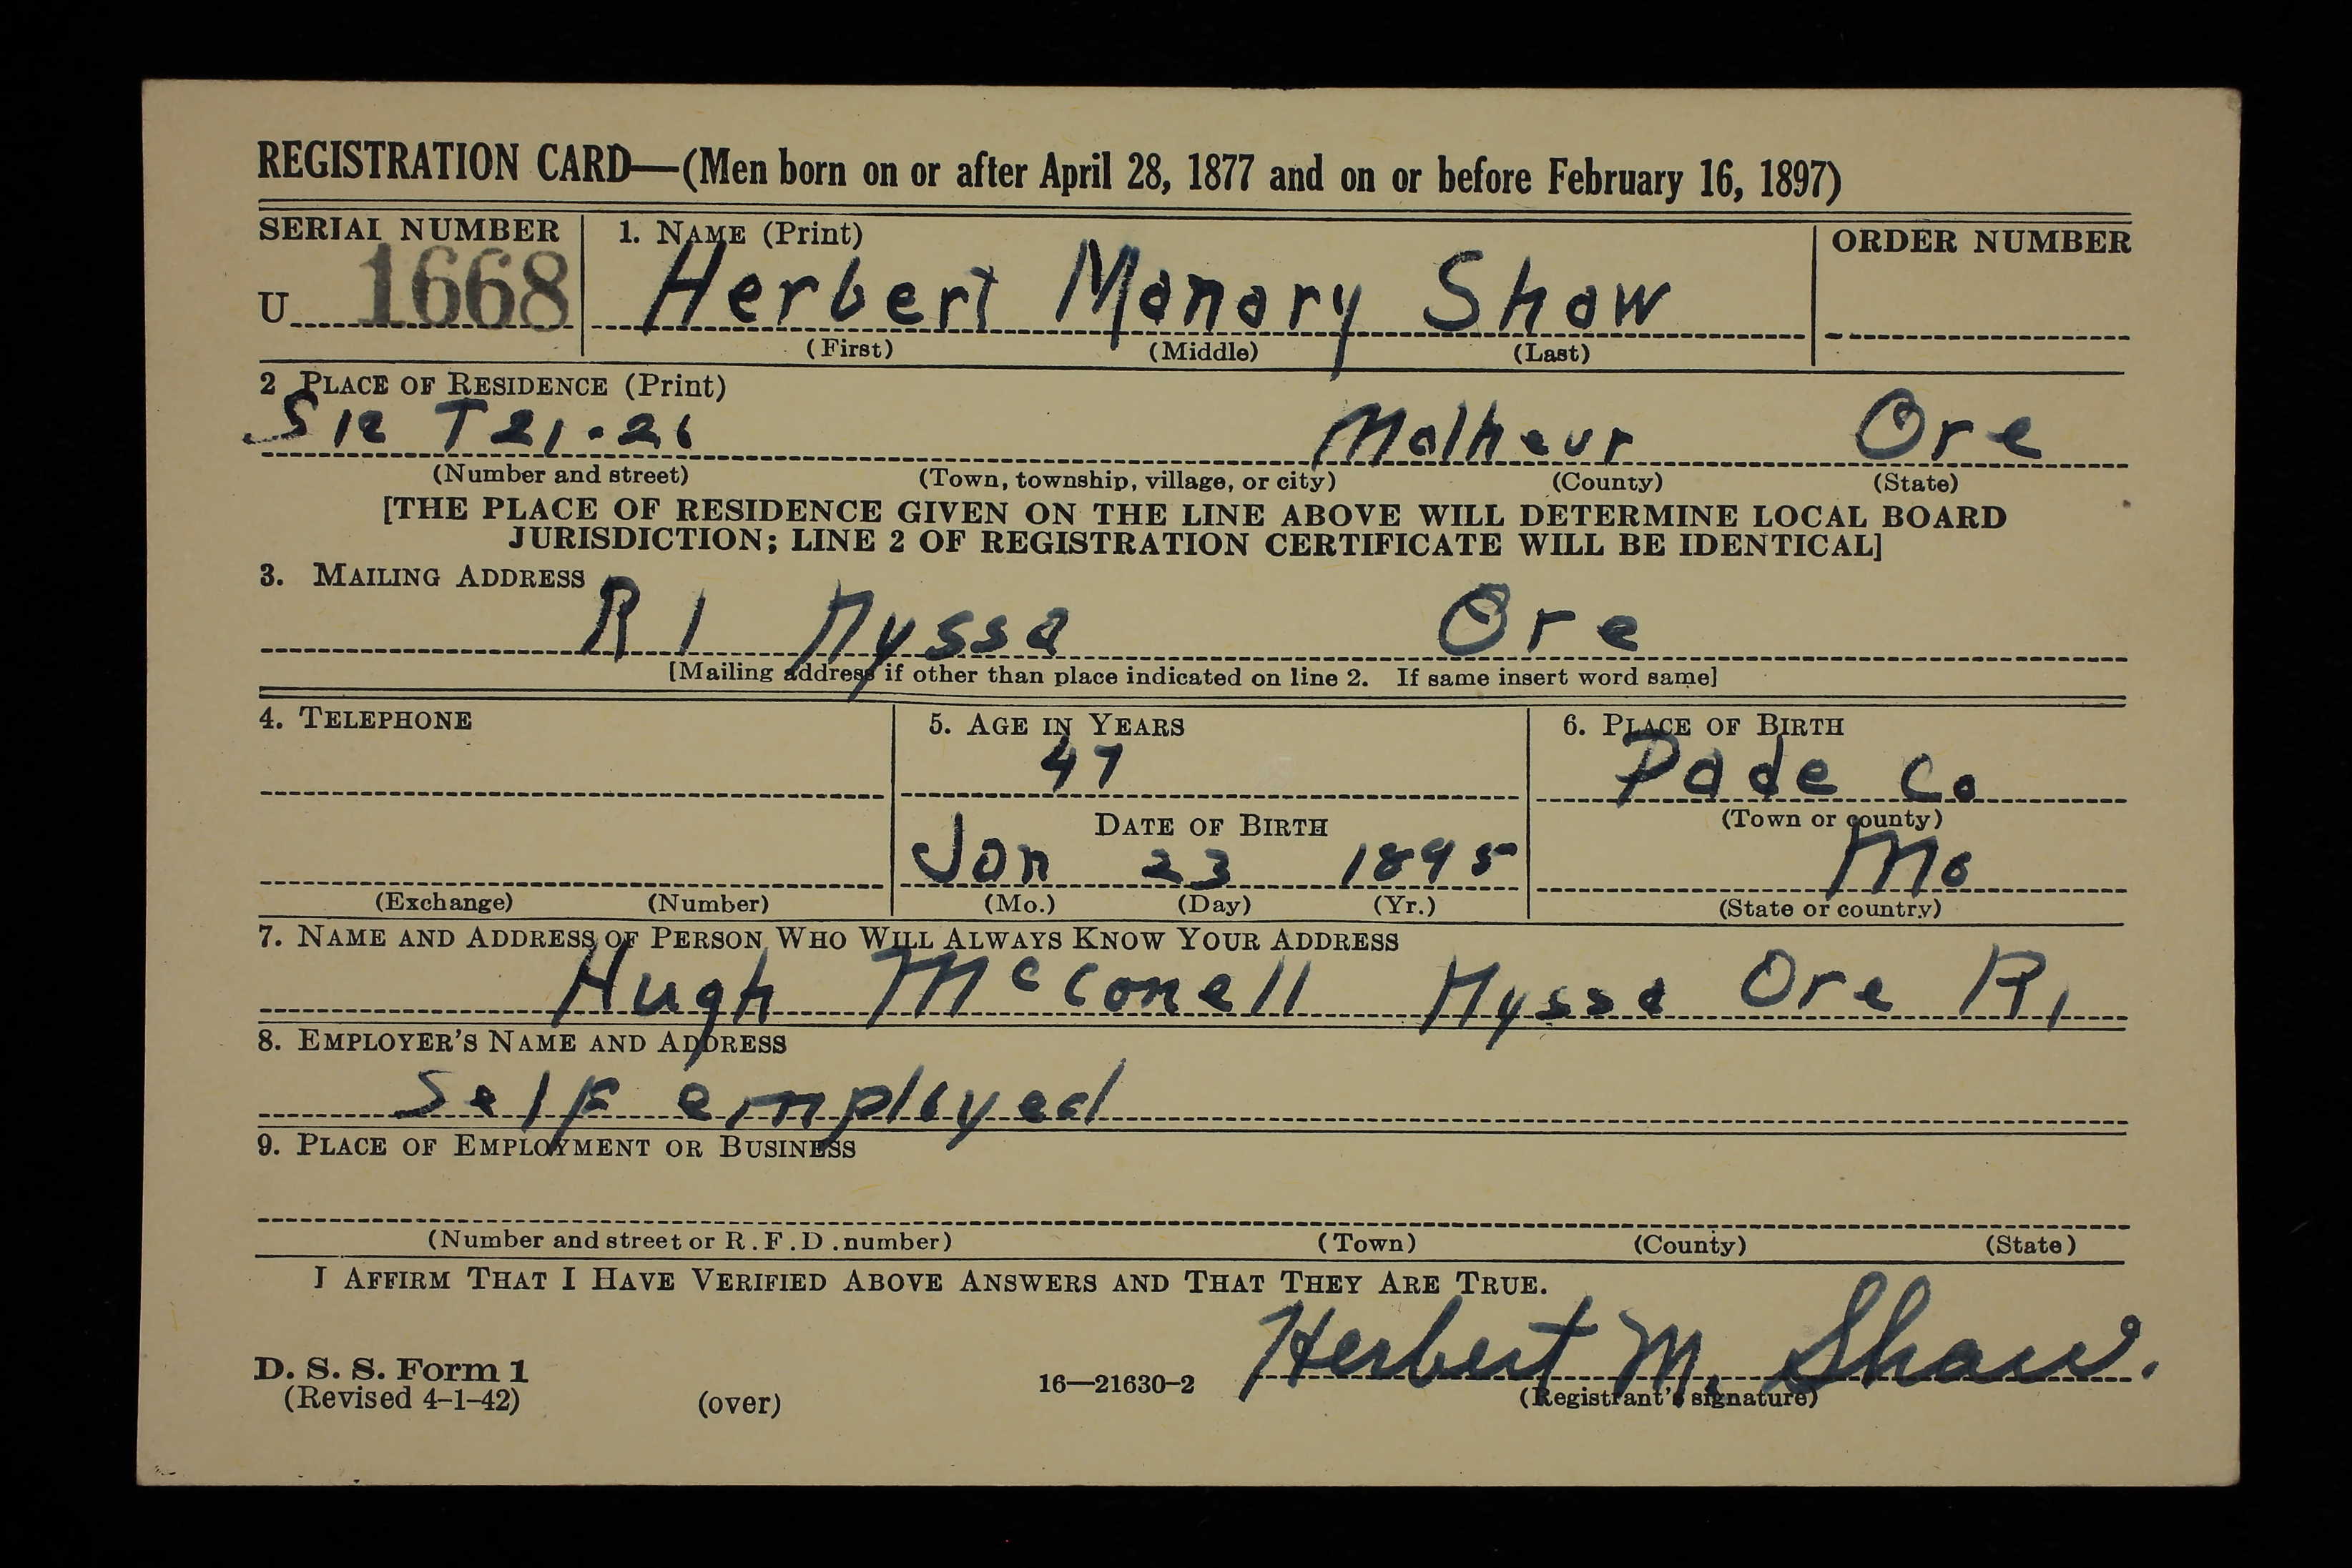 REGISTRATION CARD—(Men born on or after April 28, 1877 and on or before February 16, 1897)
SERIAL NUMBER
1. NAME (Print)
ORDER NUMBER
U 1668
Herbert Manary Shaw
(First) (Middle) (Last)
2 PLACE OF RESIDENCE (Print)
S 12 T 21-26 Malheur Ore
(Number and street) (Town, township, village, or city) (County) (State)
[THE PLACE OF RESIDENCE GIVEN ON THE LINE ABOVE WILL DETERMINE LOCAL BOARD
JURISDICTION; LINE 2 OF REGISTRATION CERTIFICATE WILL BE IDENTICAL]
3. MAILING ADDRESS
R 1 Nyssa Ore
[Mailing address if other than place indicated on line 2. If same insert word same]
4. TELEPHONE
5. AGE IN YEARS
6. PLACE OF BIRTH
47
Dade Co
DATE OF BIRTH
(Town or county)
Jan 23 1895
Mo
(Exchange) (Number)
(Mo.) (Day) (Yr.)
(State or country)
7. NAME AND ADDRESS OF PERSON WHO WILL ALWAYS KNOW YOUR ADDRESS
Hugh McConell Nyssa Ore R 1
8. EMPLOYER'S NAME AND ADDRESS
Self employed
9. PLACE OF EMPLOYMENT OR BUSINESS
(Number and street or R.F.D. number) (Town) (County) (State)
I AFFIRM THAT I HAVE VERIFIED ABOVE ANSWERS AND THAT THEY ARE TRUE.
Herbert M. Shaw.
D. S. S. Form 1
(Revised 4-1-42) (over) 16—21630-2 (Registrant's signature)